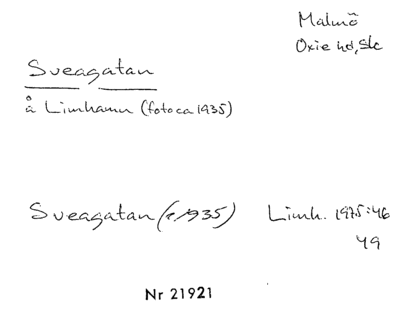 Malmö
Oxie hd, Sk
Sveagatan
å Limhamn (foto ca 1935)
Sveagatan (c 1935) Limh. 1975:46
49
Nr 21921